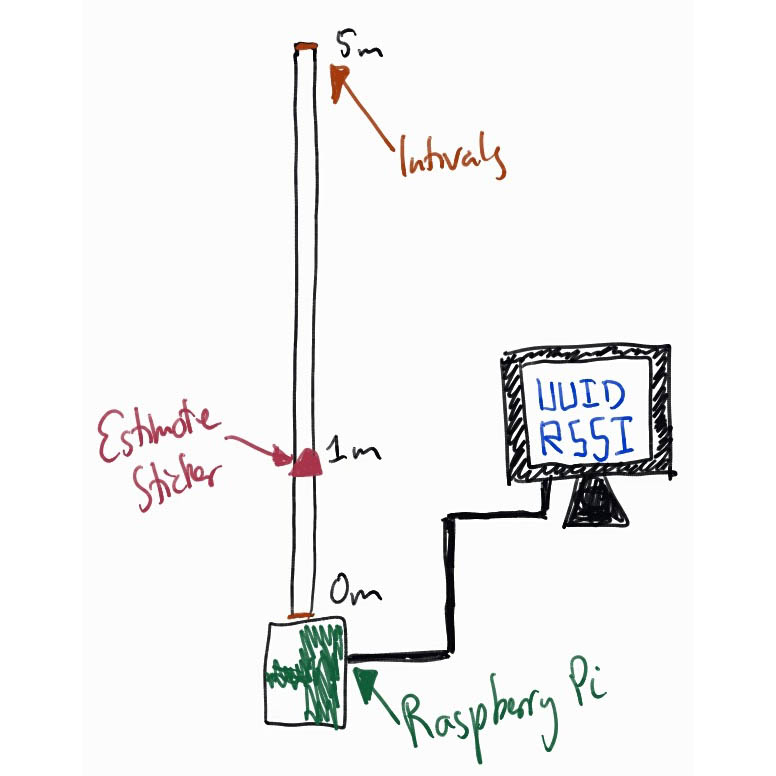 5m
Intivals
UUID
RSSI
Estimote
Sticker
1m
0m
Raspberry Pi